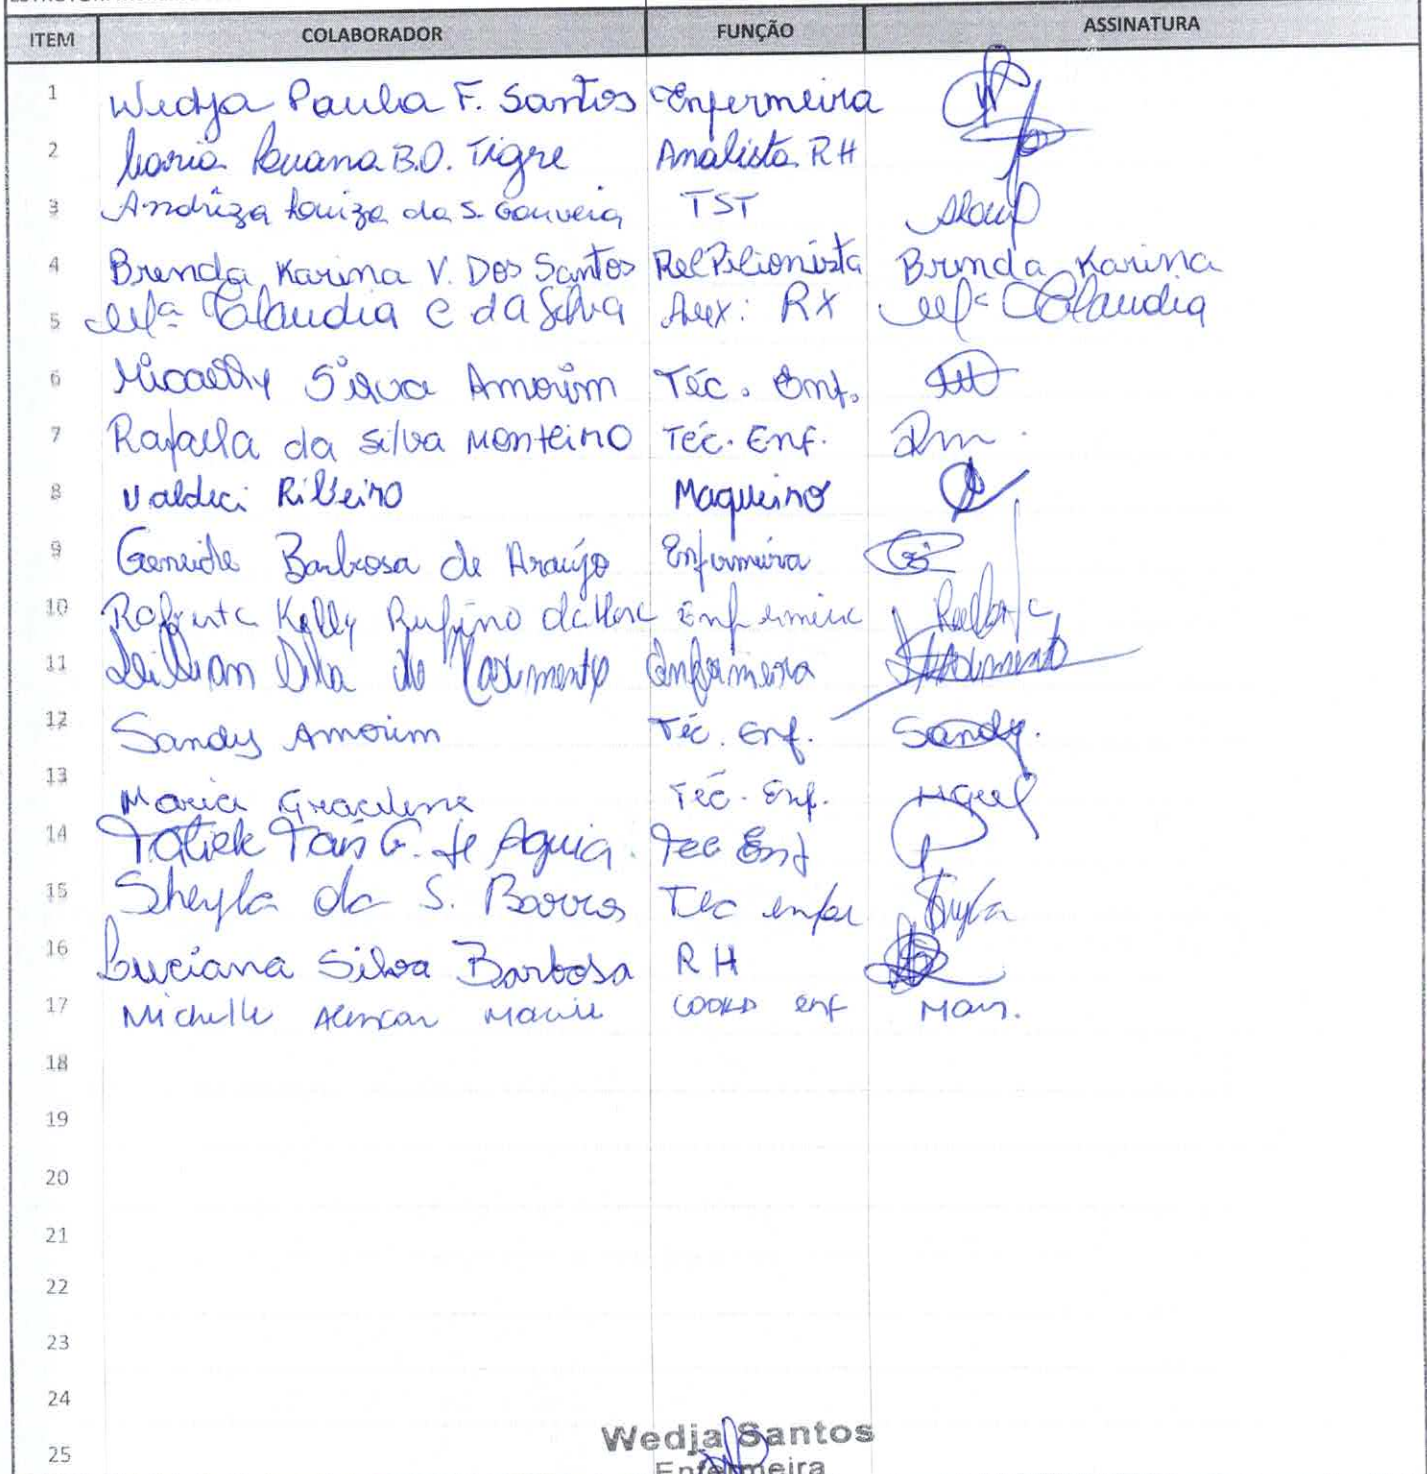 ITEM COLABORADOR FUNÇÃO ASSINATURA
1 Wedja Paula F. Santos Enfermeira
2 Maria Luana B.O. Tigre Analista RH
3 Andriza Louiza da S. Gouveia TST
4 Brenda Karina V. Dos Santos Brenda Karina
5 Mª Claudia C da Silva Aux: RX Mª Claudia
6 Micaelly Silva Amorim Téc. Enf.
7 Rafaela da Silva Monteiro Téc. Enf.
8 Valdeci Ribeiro Maqueiro
9 Geneide Barbosa de Araújo Enfermeira
10 Roberta Kelly Rufino Enfermeira
11 do Nascimento Enfermeira
12 Sandy Amorim Téc. Enf. Sandy.
13 Maria Gracilene Téc. Enf.
14 Tais G. de Aguiar Tec Enf
15 Sheyla da S. Barros Tec enfer Sheyla
16 Luciana Silva Barbosa RH
17 Michelle Alencar COORD enf
18
19
20
21
22
23
24
25
Wedja Santos
Enfermeira